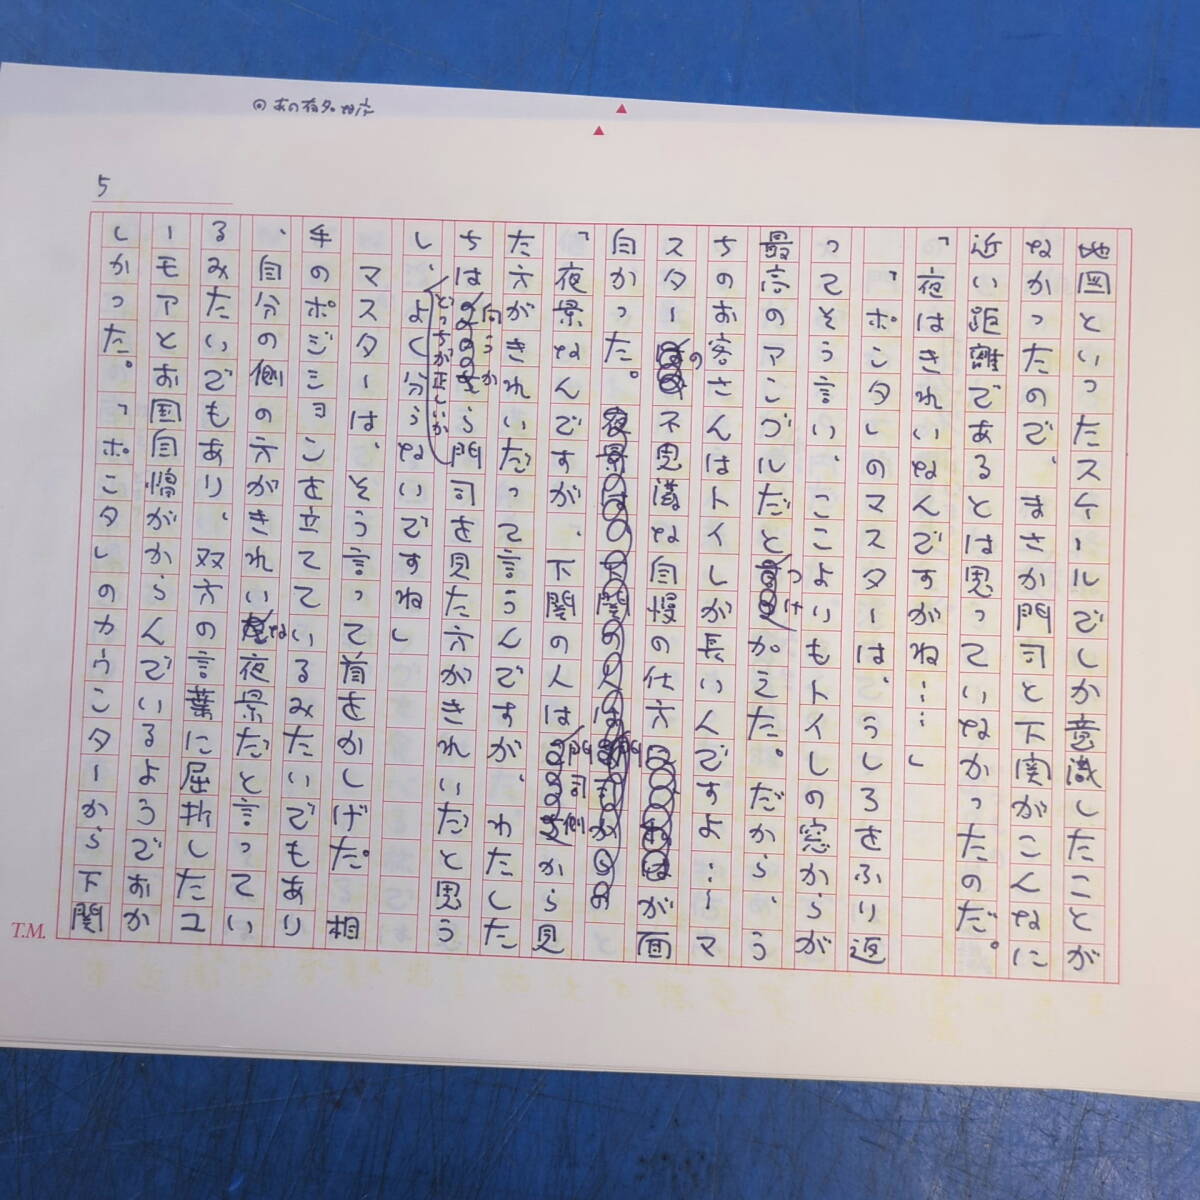 5
地図といったスケールでしか意識したことが
なかったので、まさか門司と下関がこんなに
近い距離であるとは思っていなかったのだ。
「夜はきれいなんですがね……」
「ポンタ」のマスターは、うしろをふり返
ってそう言い、ここよりもトイレの窓からが
最高のアングルだとつけ加えた。だから、う
ちのお客さんはトイレが長いんですよ……マ
スターの不思議な自慢の仕方が面
白かった。
「夜景なんですが、下関の人は門司側から見
た方がきれいだって言うんですが、わたした
ちは向うから門司を見た方がきれいだと思う
し、どっちが正しいかよく分らないですね」
マスターは、そう言って首をかしげた。相
手のポジションを立てているみたいでもあり
、自分の側の方がきれいな夜景だと言ってい
るみたいでもあり、双方の言葉に屈折したユ
ーモアとお国自慢がからんでいるようでおか
しかった。「ポンタ」のカウンターから下関
T.M.